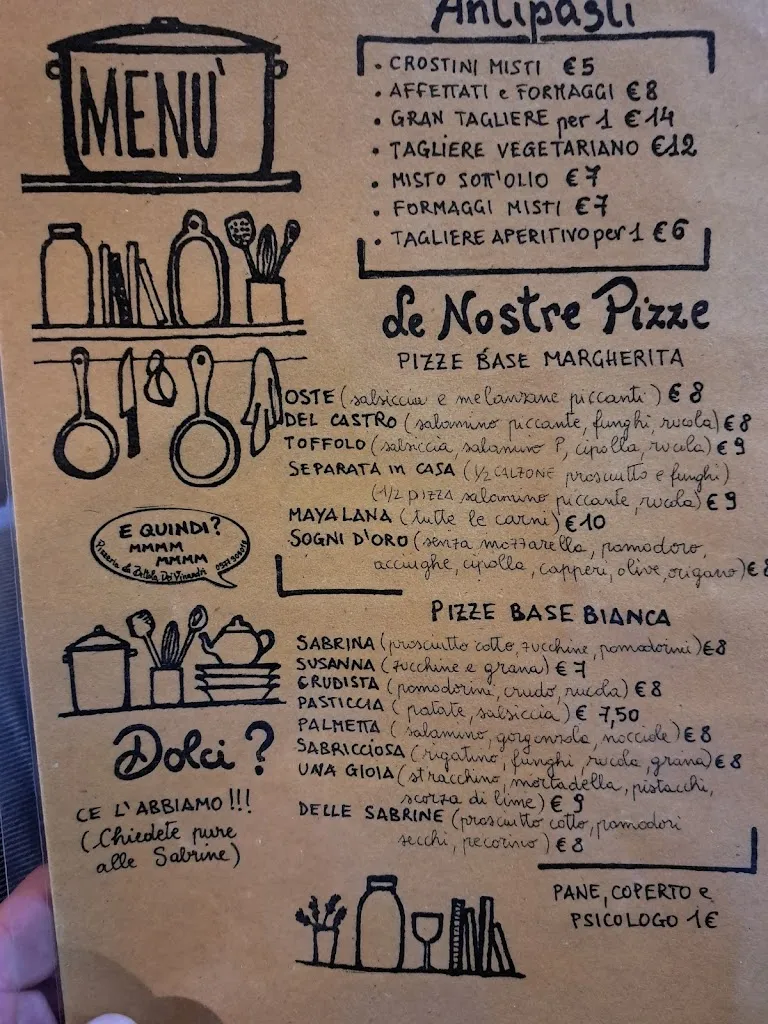 MENU'
Antipasti
• CROSTINI MISTI €5
• AFFETTATI e FORMAGGI €8
• GRAN TAGLIERE per 1 €14
• TAGLIERE VEGETARIANO €12
• MISTO SOTT'OLIO €7
• FORMAGGI MISTI €7
• TAGLIERE APERITIVO per 1 €6
Le Nostre Pizze
PIZZE BASE MARGHERITA
OSTE (salsiccia e melanzane piccanti) €8
DEL CASTRO (salamino piccante, funghi, rucola) €8
TOFFOLO (salsiccia, salamino P, cipolla, rucola) €9
SEPARATA in CASA (1/2 CALZONE prosciutto e funghi)
(1/2 PIZZA salamino piccante, rucola) €9
MAYALANA (tutte le carni) €10
SOGNI D'ORO (senza mozzarella, pomodoro,
acciughe, cipolla, capperi, olive, origano) €8
E QUINDI?
MMMM
MMMM
Pizzeria la
Dei Vinandi
PIZZE BASE BIANCA
SABRINA (prosciutto cotto, zucchine, pomodorini) €8
SUSANNA (zucchine e grana) €7
CRUDISTA (pomodorini, crudo, rucola) €8
PASTICCIA (patate, salsiccia) € 7,50
PALMETTA (salamino, gorgonzola, nocciole) €8
SABRICCIOSA (rigatino, funghi, rucola, grana) €8
UNA GIOIA (stracchino, mortadella, pistacchi,
scorza di lime) €9
DELLE SABRINE (prosciutto cotto, pomodori
secchi, pecorino) €8
Dolci?
CE L'ABBIAMO!!!
(Chiedete pure
alle Sabrine)
PANE, COPERTO e
PSICOLOGO 1€